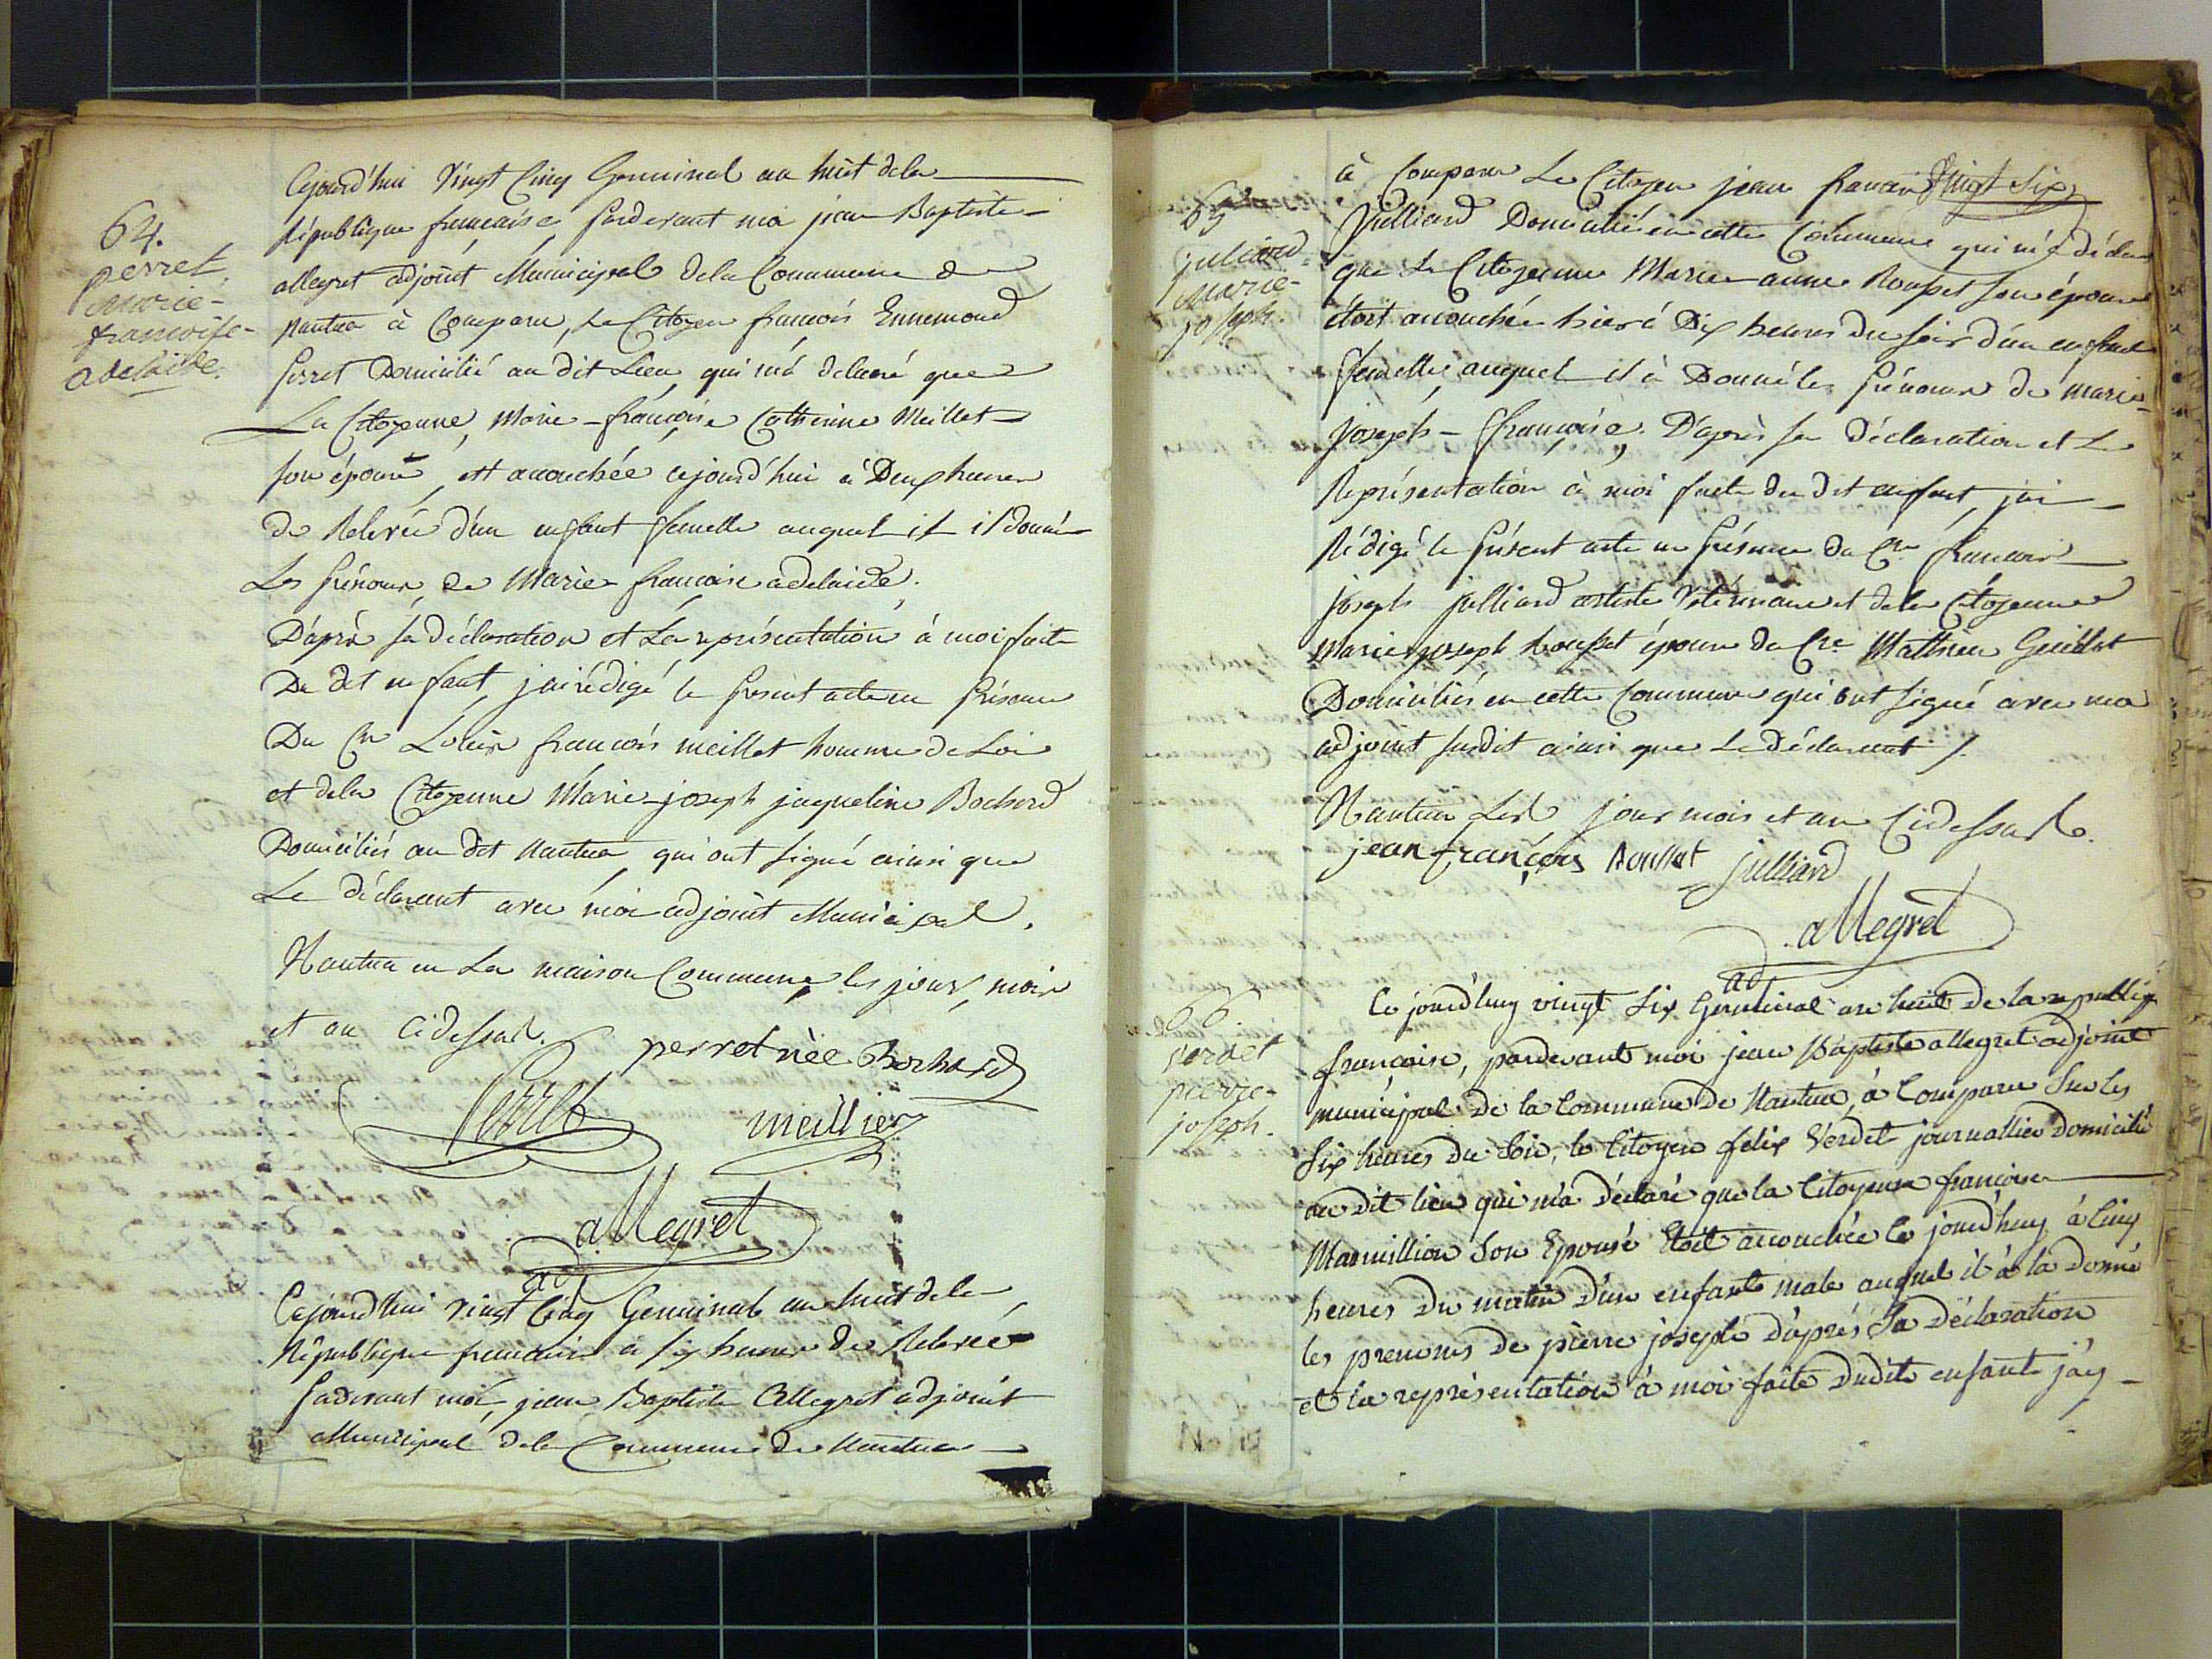 64.
perret
marie-
francoise-
adelaide.
Cejourd'hui Vingt Cinq Germinal an huit dela
République française pardevant moi jean Baptiste
allegret adjoint Municipal dela Commune de
Nantua à Comparu, Le Citoyen françois Ennemond
Perret Domicilié au dit Lieu, qui m'a déclaré que
La Citoyenne, Marie-françoise Catherine Meillet
son épouse, est accouchée cejourd'hui à Deux heures
de Relevée d'un enfant femelle auquel il il donné
Les prénoms, de Marie francoise adelaide.
D'après sa déclaration et La représentation à moi faite
Du dit enfant, jai rédigé le présent acte en présence
Du Cen Louis françois meillet homme de Loi
et dela Citoyenne Marie-joseph jaqueline Bochard
Domiciliés au dit Nantua, qui ont signé ainsi que
Le déclarant avec moi adjoint Municipal.
Nantua en La maison Commune, les jour, mois
et an cidessus.
perret née Bochard
Perret
meillier
allegret
adj
Cejourd'hui vingt Cinq Germinal an huit dela
République française à six heures de Relevée
Pardevant moi, jean Baptiste Allegret adjoint
Municipal dela Commune de Nantua
Vingt Six
65
juliard
marie-
joseph.
à Comparu Le Citoyen jean francois
Julliard Domicilié en cette Commune qui m'a déclaré
que La Citoyenne Marie anne Rousset son épouse
étoit accouchée hier à Dix heures du soir d'un enfant
femelle, auquel il à Donné les Prénoms de marie-
joseph-françoise. D'après sa Déclaration et La
Représentation à moi faite du dit enfant, jai
Rédigé le présent acte en présence du Cen francois
joseph julliard artiste Vétérinaire et dela Citoyenne
Marie joseph Rousset épouse du Cen Mathieu Guillot
Domiciliés en cette Commune qui ont signé avec moi
adjoint susdit ainsi que Le Déclarant /.
Nantua Les jour mois et an Cidessus.
jean françois Roullet julliard
allegret
adj
66.
verdet
pierre-
joseph.
Ce jourd'huy vingt Six Germinal an huit de la republiq
françoise, pardevant moi jean Baptiste allegret adjoint
municipal de la Commune de Nantua, à Comparu Sur les
Six heures du Soir, le Citoyen felix Verdet journallier domicilié
au dit lieu qui m'a déclaré que la Citoyenne francoise
Marmillion Son Epouse Etoit accouchée Ce jourd'huy à Cinq
heures Du matin D'un enfant male auquel il à la donné
les prenoms de pierre joseph D'après Sa Déclaration
et la représentation à moi faite Dudit enfant j'ay